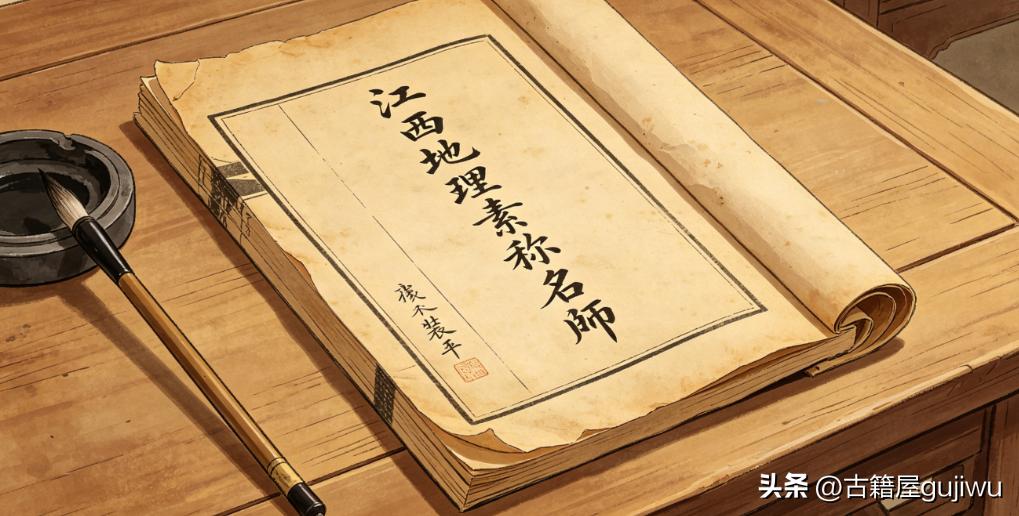 江西地理素称名師
装平
头条 @古籍屋gujiwu